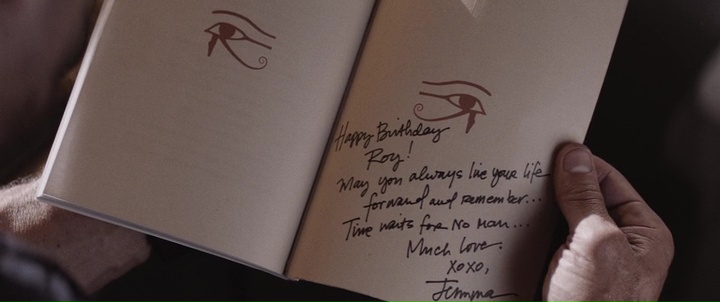 Happy Birthday
Roy!
May you always live your life
forward and remember...
Time waits for No Man...
Much love.
XOXO,
Jemma